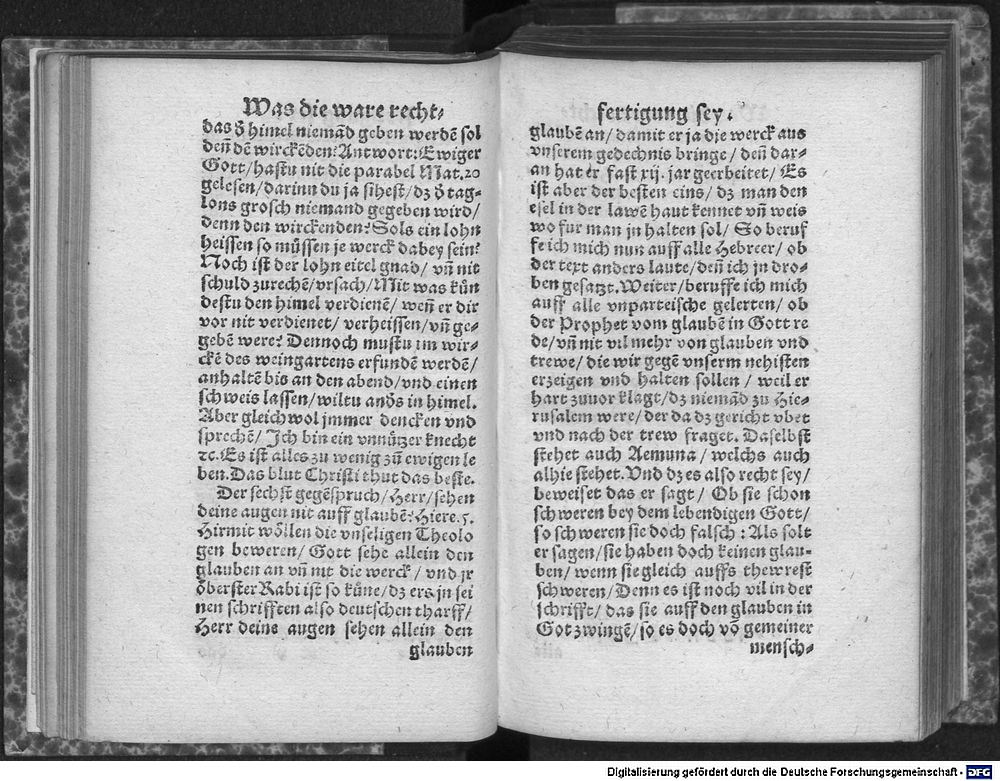 Was die ware recht⸗
das d̄ himel niemād geben werdē sol
deñ dē wirckēden? Antwort: Ewiger
Gott/hastu nit die parabel Mat.20
gelesen/darinn du ja sihest/dz d̄ tag⸗
lons grosch niemand gegeben wird/
denn den wirckenden? Sols ein lohn
heissen so müssen je werck dabey sein?
Noch ist der lohn eitel gnad/ vñ nit
schuld zurechē/vrsach/Mit was kün
destu den himel verdienē/ weñ er dir
vor nit verdienet/ verheissen/vñ ge⸗
gebē were? Dennoch mustu im wir⸗
ckē des weingartens erfundē werdē/
anhaltē bis an den abend/vnd einen
schweis lassen/wiltu and̄s in himel.
Aber gleichwol jmmer dencken vnd
sprechē/ Ich bin ein vnnützer knecht
ꝛc. Es ist alles zu wenig zū ewigen le
ben. Das blut Christi thut das beste.
Der sechst gegēspruch/Herr/sehen
deine augen nit auff glaubē? Hiere.5.
Hirmit wöllen die vnseligen Theolo
gen beweren/ Gott sehe allein den
glauben an vñ nit die werck/ vnd jr
öberster Rabi ist so küne/dz ers jn sei
nen schrifften also deutschen tharff/
Herr deine augen sehen allein den
glauben
fertigung sey.
glaubē an/damit er ja die werck aus
vnserem gedechnis bringe/ deñ dar⸗
an hat er fast xij. jar geerbeitet/ Es
ist aber der besten eins/ dz man den
esel in der lawē haut kennet vñ weis
wo fur man jn halten sol/ So beruf
fe ich mich nun auff alle Hebreer/ ob
der text anders laute/deñ ich jn dro⸗
ben gesatzt. Weiter/beruffe ich mich
auff alle vnparteische gelerten/ ob
der Prophet vom glaubē in Gott re
de/vñ nit vil mehr von glauben vnd
trewe/die wir gegē vnserm nehisten
erzeigen vnd halten sollen/ weil er
hart zuuor klagt/dz niemād zu Hie⸗
rusalem were/der da dz gericht vbet
vnd nach der trew fraget. Daselbst
stehet auch Aemuna/ welchs auch
alhie stehet. Vnd dz es also recht sey/
beweiset das er sagt/ Ob sie schon
schweren bey dem lebendigen Gott/
so schweren sie doch falsch: Als solt
er sagen/sie haben doch keinen glau⸗
ben/wenn sie gleich auffs thewrest
schweren/Denn es ist noch vil in der
schrifft/das sie auff den glauben in
Got zwingē/so es doch vō gemeiner
mensch⸗
Digitalisierung gefördert durch die Deutsche Forschungsgemeinschaft - DFG